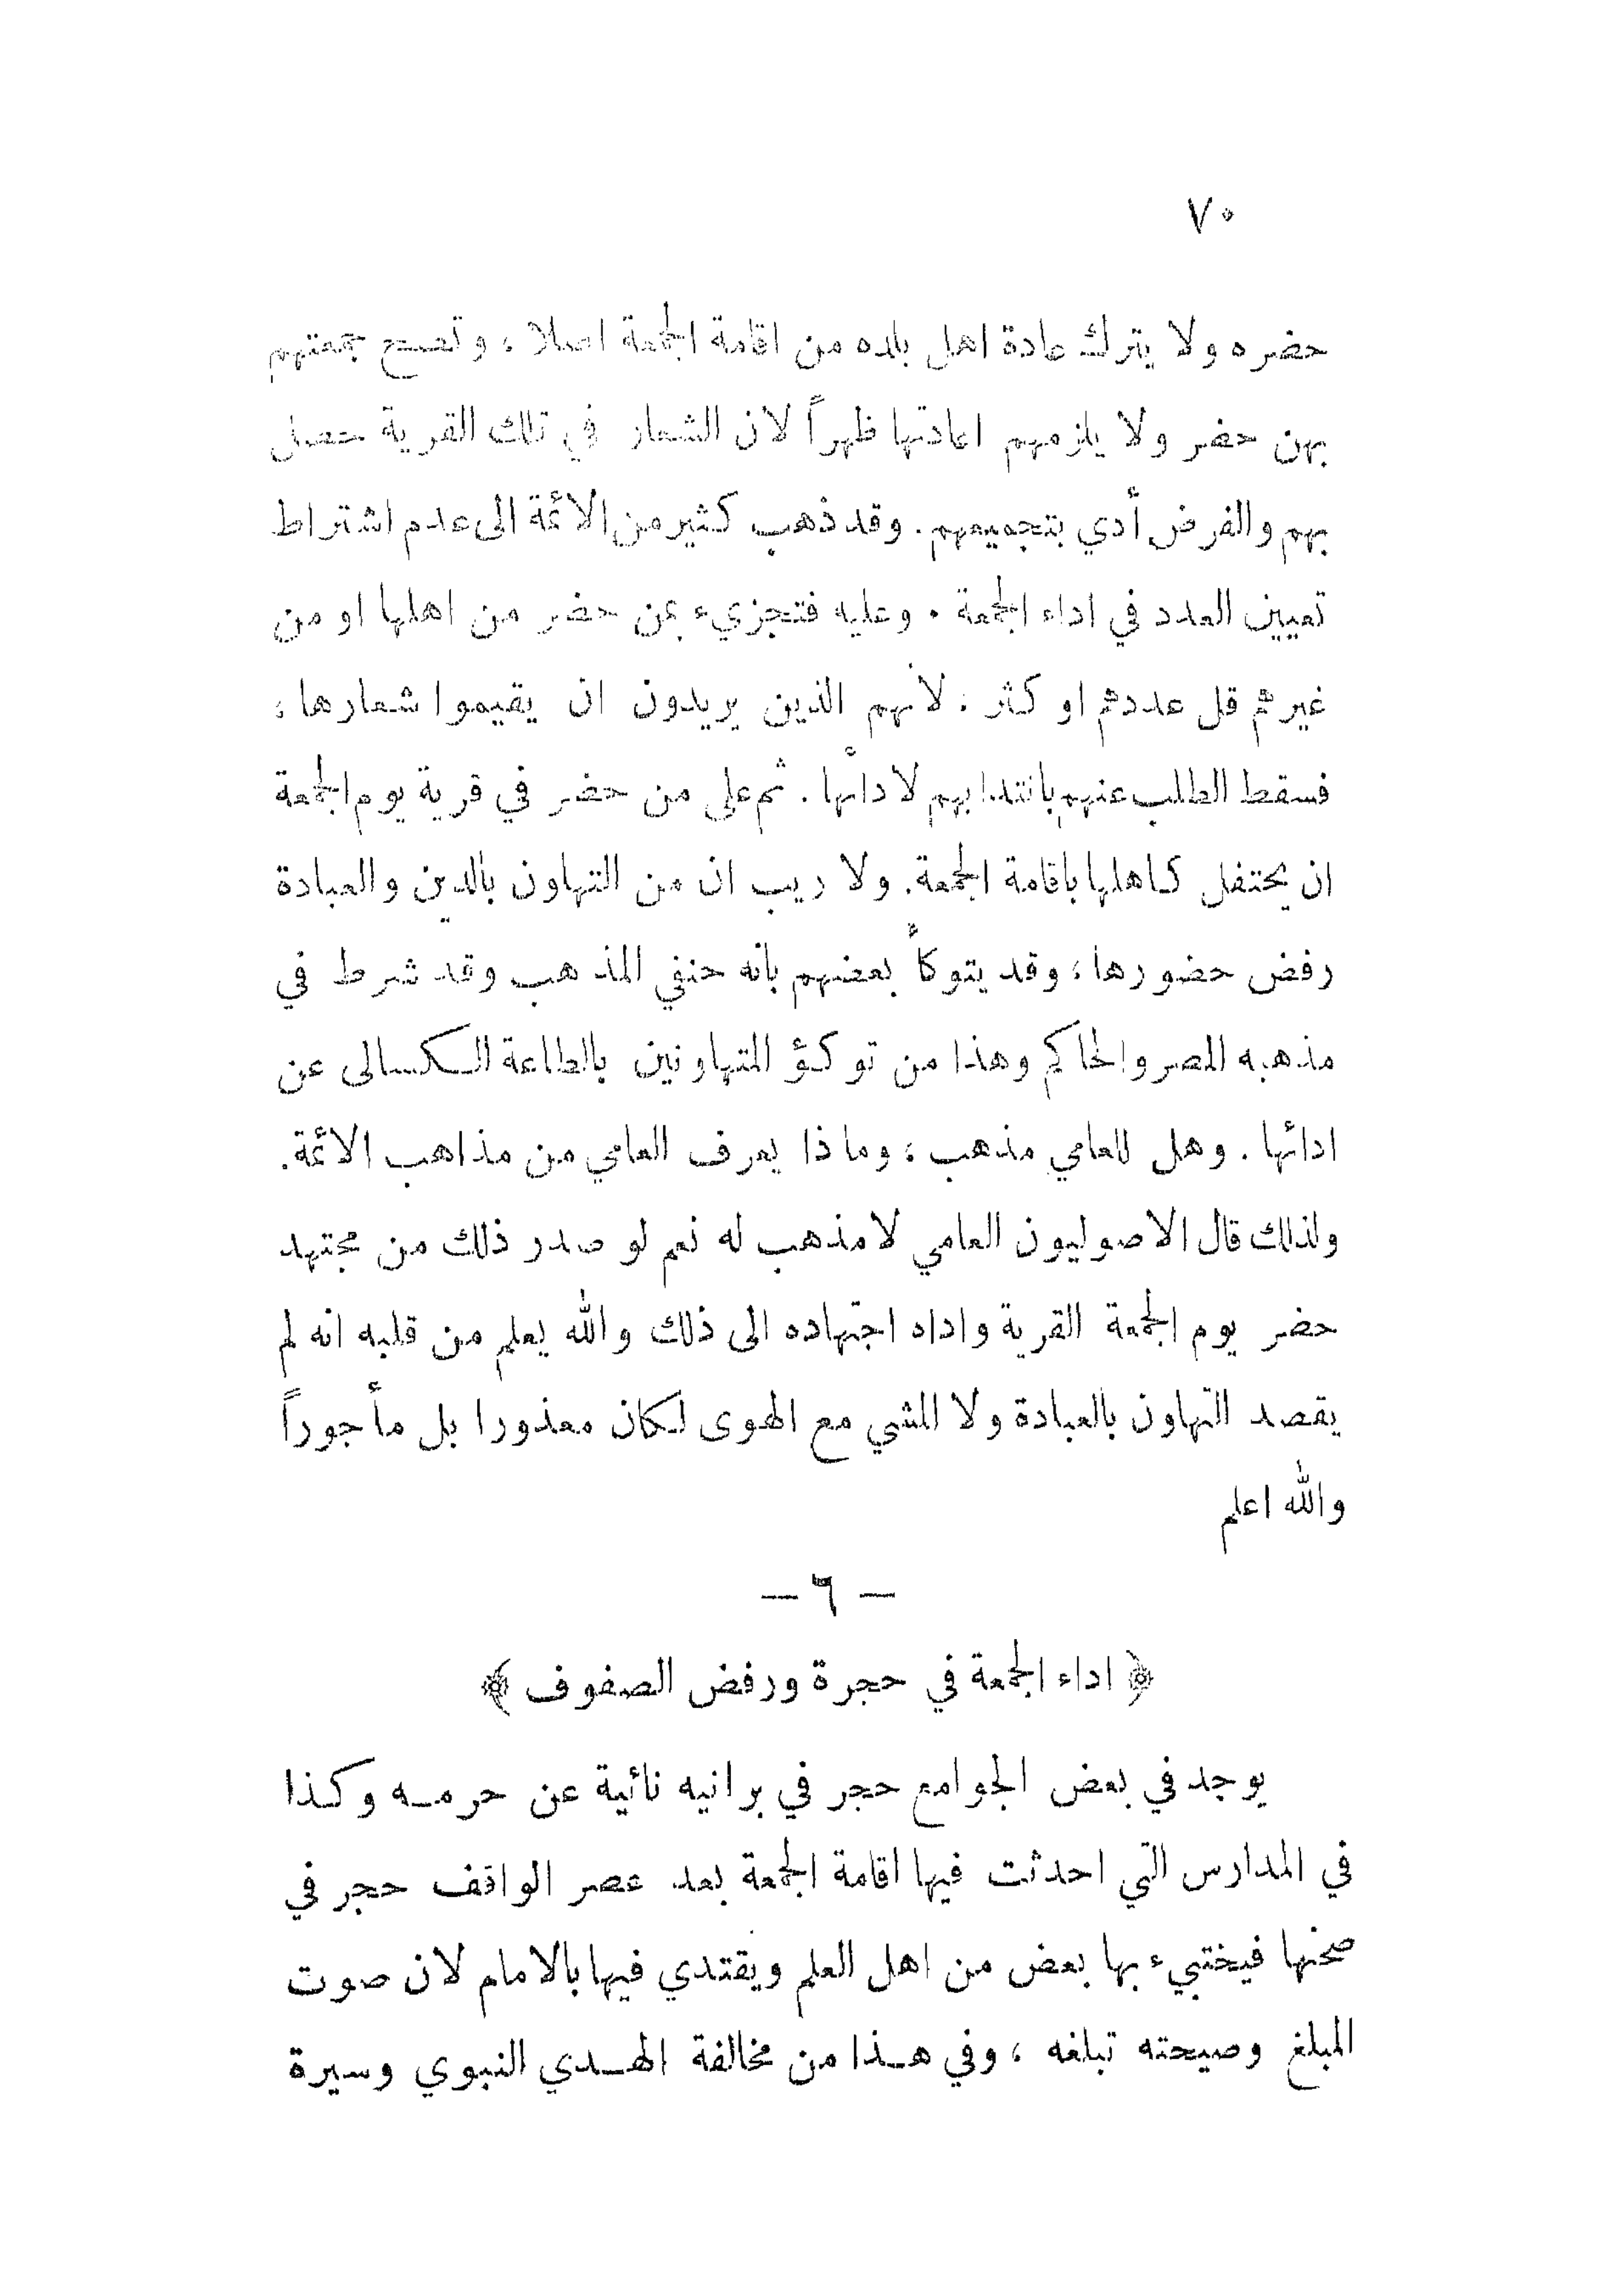 ٧٠
حضره ولا يترك عادة اهل بلده من اقامة الجمعة اصلا ، وتصح جمعتهم
بهن حضر ولا يلزمهم اعادتها ظهراً لان الشعار في تلك القرية حصل
بهم والفرض أدي بتجميعهم . وقد ذهب كثير من الائمة الى عدم اشتراط
تعيين العدد في اداء الجمعة . وعليه فتجزيء بمن حضر من اهلها او من
غيرهم قل عددهم او كثر ، لانهم الذين يريدون ان يقيموا شعارها ،
فسقط الطلب عنهم بانتدابهم لادائها . ثم على من حضر في قرية يوم الجمعة
ان يحتفل كاهلها باقامة الجمعة . ولا ريب ان من التهاون بالدين والعبادة
رفض حضورها ، وقد يتوكأ بعضهم بانه حنفي المذهب وقد شرط في
مذهبه المصر والحاكم وهذا من توكؤ المتهاونين بالطاعة الكسالى عن
ادائها . وهل للعامي مذهب ، وماذا يعرف العامي من مذاهب الائمة .
ولذلك قال الاصوليون العامي لا مذهب له نعم لو صدر ذلك من مجتهد
حضر يوم الجمعة القرية واداه اجتهاده الى ذلك والله يعلم من قلبه انه لم
يقصد التهاون بالعبادة ولا المشي مع الهوى لكان معذورا بل مأجوراً
والله اعلم
– ٦ –
﴿ اداء الجمعة في حجرة ورفض الصفوف ﴾
يوجد في بعض الجوامع حجر في برانيه نائية عن حرمـه وكذا
في المدارس التي احدثت فيها اقامة الجمعة بعد عصر الواقف حجر في
صحنها فيختبيء بها بعض من اهل العلم ويقتدي فيها بالامام لان صوت
المبلغ وصيحته تبلغه ، وفي هـذا من مخالفة الهـدي النبوي وسيرة